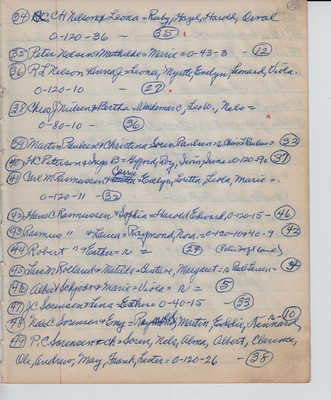 (34) C H Nelson + Leona = Ruby, Hazel, Harold, Orval
0-120-36 — (35)
(35) Peter Nelsen + Mathilde = Marie = 0-43-3 — (12)
(36) R L Nelson + = Leona, Myrtle, Evelyn, Leonard, Viola.
0-120-10 — (27)
(38) Chris J Nielsen + Bertha = Waldemar C, Leo W, Nels =
0-80-10 — (36)
(39) Martin Paulsen + Christina Soren Paulsen (32)
(40) H C Peterson + Inga B = Gifford, Roy, Irvin, = 0-120-9 = (37)
(41) Carl M Rasmussen + Carrie = Evelyn, Loretta, Leola, Marie =
0-120-11 — (32)
(42) Hans C Rasmussen + Sophia = Harold, Edward, 0-120-15 — (46)
(43) Rasmus " + Laura = Raymond, = 0-120+40-9 (42)
(44) Robert " + Esther = n = (24)
(45) Rolland + Matilda = Gustav, Margaret =
(46) Albert Schjodt + Marie = Viola = n = (5)
(47) J.C. Sorensen + Tina = Esther = 0-40-15 — (33)
(48) Nels C Sorensen + Emy = Raymond, Martin, Eddie, n (10)
(49) P.C. Sorensen + = Soren, Nels, Alma, Albert, Clarence,
Ole, Andrew, May, Frank, Lester = 0-120-26 — (38)